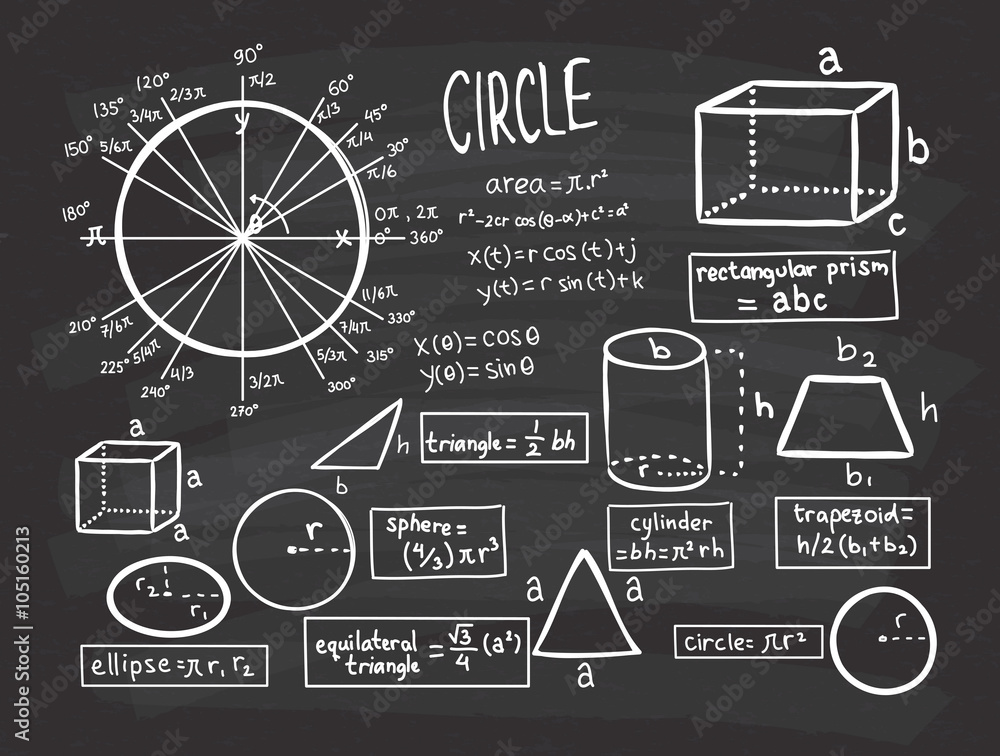 90°
π/2
120°
2/3π
60°
π/3
135°
3/4π
45°
π/4
150° 5/6π
30°
π/6
y
θ
180°
π
x
0π, 2π
0° 360°
210°
7/6π
11/6π
330°
225° 5/4π
7/4π
315°
240° 4/3
5/3π
300°
3/2π
270°
CIRCLE
area = π.r²
r²-2cr cos(θ-α)+c²=a²
x(t)=r cos(t)+j
y(t)= r sin(t)+k
x(θ)=cosθ
y(θ)= sinθ
a
b
c
rectangular prism
= abc
b
h
r
cylinder
=bh=π²rh
b₂
h
b₁
trapezoid=
h/2(b₁+b₂)
h
b
triangle= 1/2 bh
a
a
a
r
sphere=
(4/3)πr³
r₂
r₁
ellipse=πr₁r₂
equilateral
triangle = √3/4 (a²)
a
a
a
circle= πr²
r
Adobe Stock
Adobe Stock | #105160213